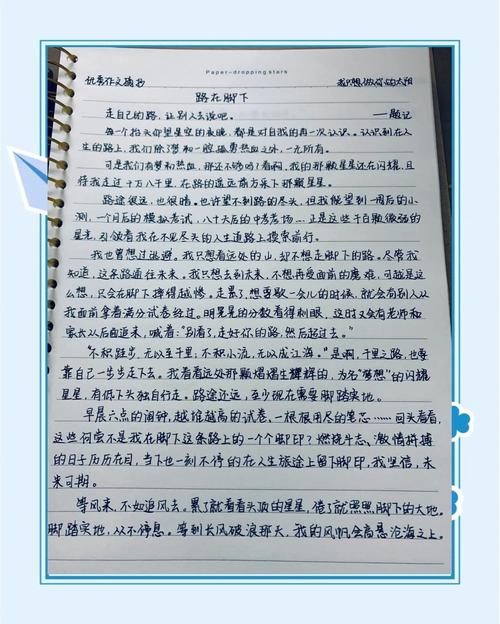 Paper-dropping stars
优秀作文摘抄 我只想做你的太阳
路在脚下
走自己的路,让别人去说吧。 ——题记
每一个抬头仰望星空的夜晚,都是对自我的再一次认识。认识到在人
生的路上,我们除了梦和一腔孤勇热血之外,一无所有。
可是我们有梦和热血,那还不够吗?看啊,我的那颗星星还在闪耀,且
待我走过十万八千里,在路的遥远前方采下那颗星星。
路途很远,也很暗。也许望不到路的尽头,但我能望到一周后的小
测,一个月后的模拟考试,八十天后的中考考场……正是这些千百颗微弱的
星光,引领着我在不见尽头的人生道路上摸索前行。
我也曾想过逃避。我只想看远处的山,却不想走脚下的路。尽管我
知道,这条路通往未来。我只想去到未来,不想再受面前的磨难,可越是这
么想,只会在脚下摔得越惨。走累了,想要歇一会儿的时候,就会有别人从
我面前拿着满分试卷经过。明晃晃的分数看得刺眼,这时又会有老师和
家长从后面追来,喊着:“别看了,走好你的路,然后超过去。”
“不积跬步,无以至千里,不积小流,无以成江海。”是啊,千里之路,也要
靠自己一步步走下去。我看着远处那颗熠熠生辉样的,为名“梦想”的闪耀
星星,有低下头独自行走。路途还远,至少现在需要脚踏实地。
早晨六点的闹钟,越堆越高的试卷,一根根用尽的笔芯……回头看看,
这些何尝不是我在脚下这条路上的一个个脚印?燃烧斗志、激情拼搏
的日子历历在目,当下也一刻不停的在人生旅途上留下脚印,我坚信,未
来可期。
等风来,不如追风去。累了就看看头顶的星星,倦了就照照脚下的大地。
脚踏实地,从不停息。等到长风破浪那天,我的风帆会高悬沧海之上。